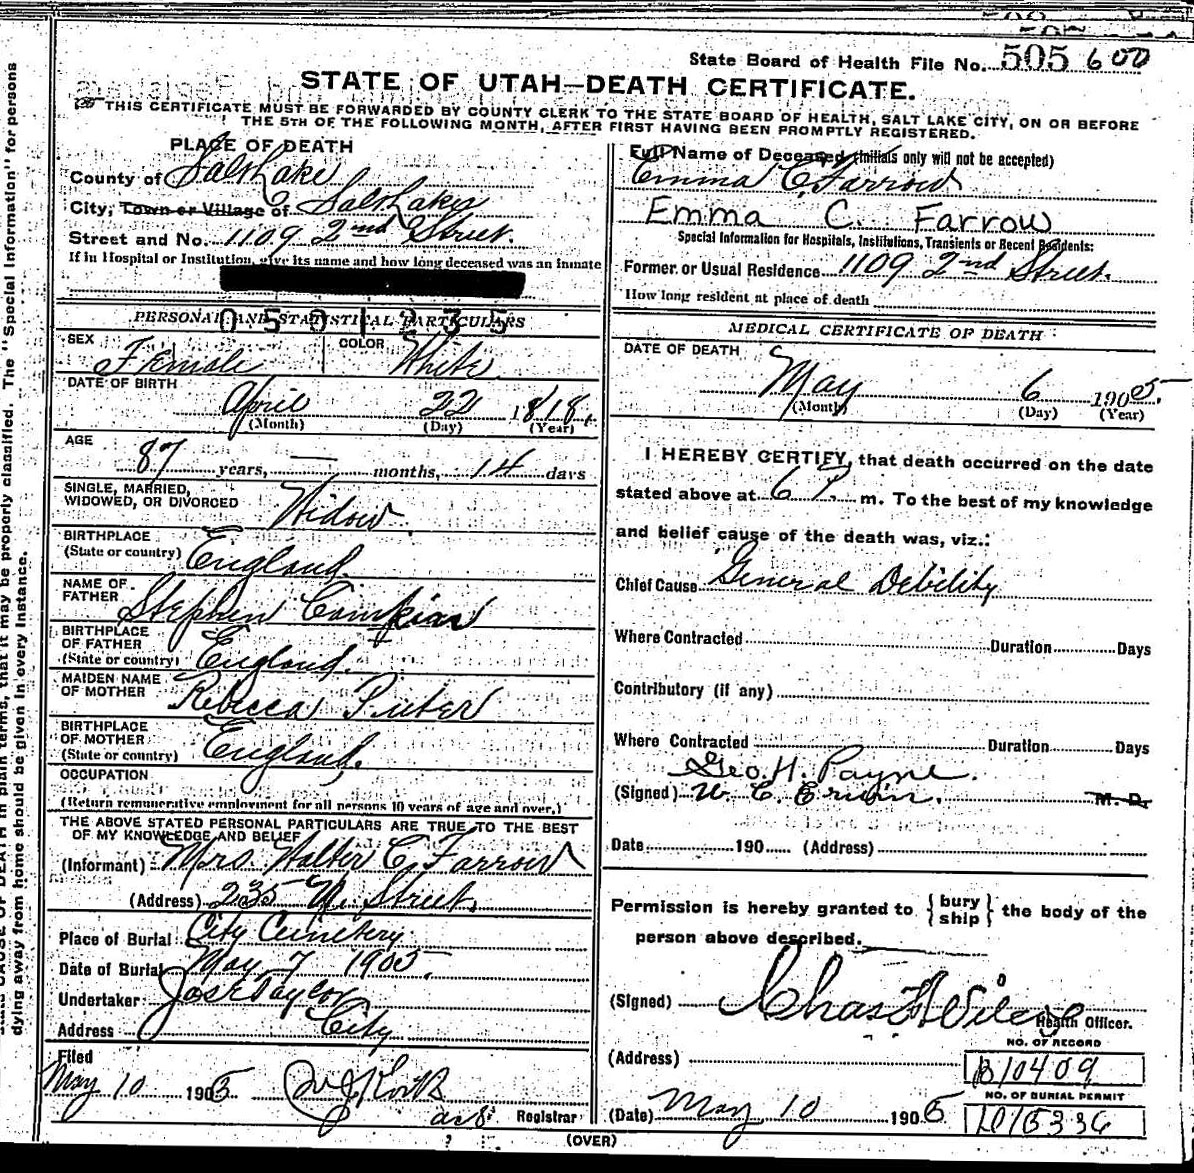 State Board of Health File No. 505 600
STATE OF UTAH—DEATH CERTIFICATE.
THIS CERTIFICATE MUST BE FORWARDED BY COUNTY CLERK TO THE STATE BOARD OF HEALTH, SALT LAKE CITY, ON OR BEFORE
THE 5TH OF THE FOLLOWING MONTH, AFTER FIRST HAVING BEEN PROMPTLY REGISTERED.
PLACE OF DEATH
County of Salt Lake
City, Town or Village of Salt Lake
Street and No. 1109 2nd Street.
If in Hospital or Institution, give its name and how long deceased was an inmate
PERSONAL AND STATISTICAL PARTICULARS
0501235
SEX Female COLOR White
DATE OF BIRTH
April 22 1818.
(Month) (Day) (Year)
AGE
87 years, — months, 14 days
SINGLE, MARRIED,
WIDOWED, OR DIVORCED Widow
BIRTHPLACE
(State or country) England
NAME OF
FATHER Stephen Camkian
BIRTHPLACE
OF FATHER
(State or country) England.
MAIDEN NAME
OF MOTHER Rebecca
BIRTHPLACE
OF MOTHER
(State or country) England.
OCCUPATION
(Return remunerative employment for all persons 10 years of age and over.)
THE ABOVE STATED PERSONAL PARTICULARS ARE TRUE TO THE BEST
OF MY KNOWLEDGE AND BELIEF
(Informant) Mrs. Walter C. Farrow
(Address) 235 N. Street.
Place of Burial City Cemetery
Date of Burial May 7 1905.
Undertaker Jos E Taylor
Address City
Filed
May 10 1905
Registrar
Full Name of Deceased (Initials only will not be accepted)
Emma C. Farrow
Emma C. Farrow
Special Information for Hospitals, Institutions, Transients or Recent Residents:
Former or Usual Residence 1109 2nd Street.
How long resident at place of death
MEDICAL CERTIFICATE OF DEATH
DATE OF DEATH
May 6 1905.
(Month) (Day) (Year)
I HEREBY CERTIFY, that death occurred on the date
stated above at 6 P. m. To the best of my knowledge
and belief cause of the death was, viz.:
Chief Cause General Debility
Where Contracted Duration Days
Contributory (if any)
Where Contracted Duration Days
Geo. H. Payne.
(Signed) W. C. Erwin. M. D.
Date 190 (Address)
Permission is hereby granted to {bury ship} the body of the
person above described.
(Signed) Chas
Health Officer.
(Address)
NO. OF RECORD
B10409
NO. OF BURIAL PERMIT
(Date) May 10 1905
(OVER)
CAUSE OF DEATH in plain terms, that it may be properly classified. The "Special Information" for persons
dying away from home should be given in every instance.